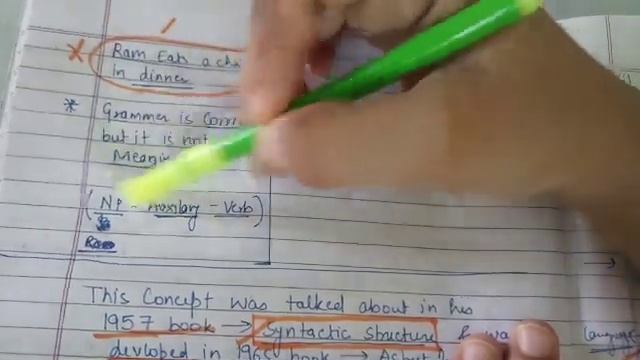 * Ram Eat a
In dinner
* Grammer is
but it is not
(NP - Auxilary - Verb)
Ram
This Concept was talked about in his
1957 book → Syntactic structure & was
devloped in 1965 book →